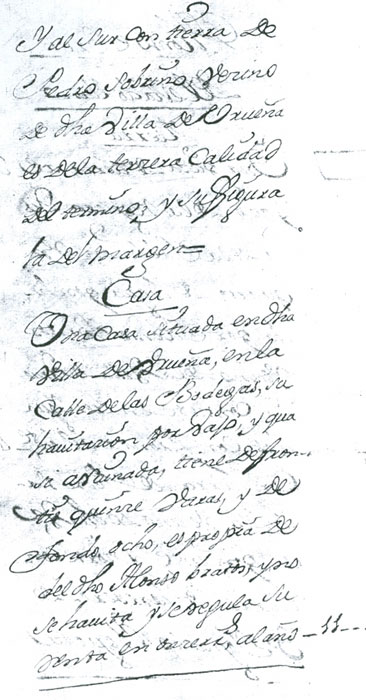 Y al Sur con tierra de
Pedro Sobrino, Vecino
de dha Villa de Urueña
es de la terzera Calidad
del termino, y su figura
la del margen=
Casa
Una Casa situada en dha
Villa de Urueña, en la
Calle de las Bodegas, su
havitazión por vajo, y qua
si arruinada, tiene de fren
te quinze Varas, y de
fondo, ocho, es propia de
del dho Alonso bravo, y no
se havita y se regula su
renta en al año - 11 -